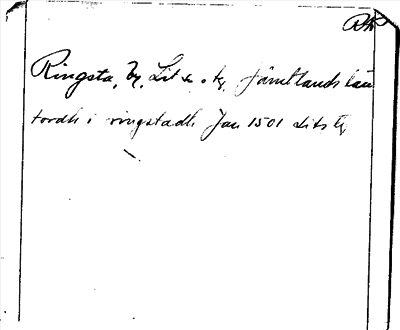 Ringsta, by, Lit sn o. tg, Jämtlands län
tordh i ringstadh Jan 1501 Lits tg